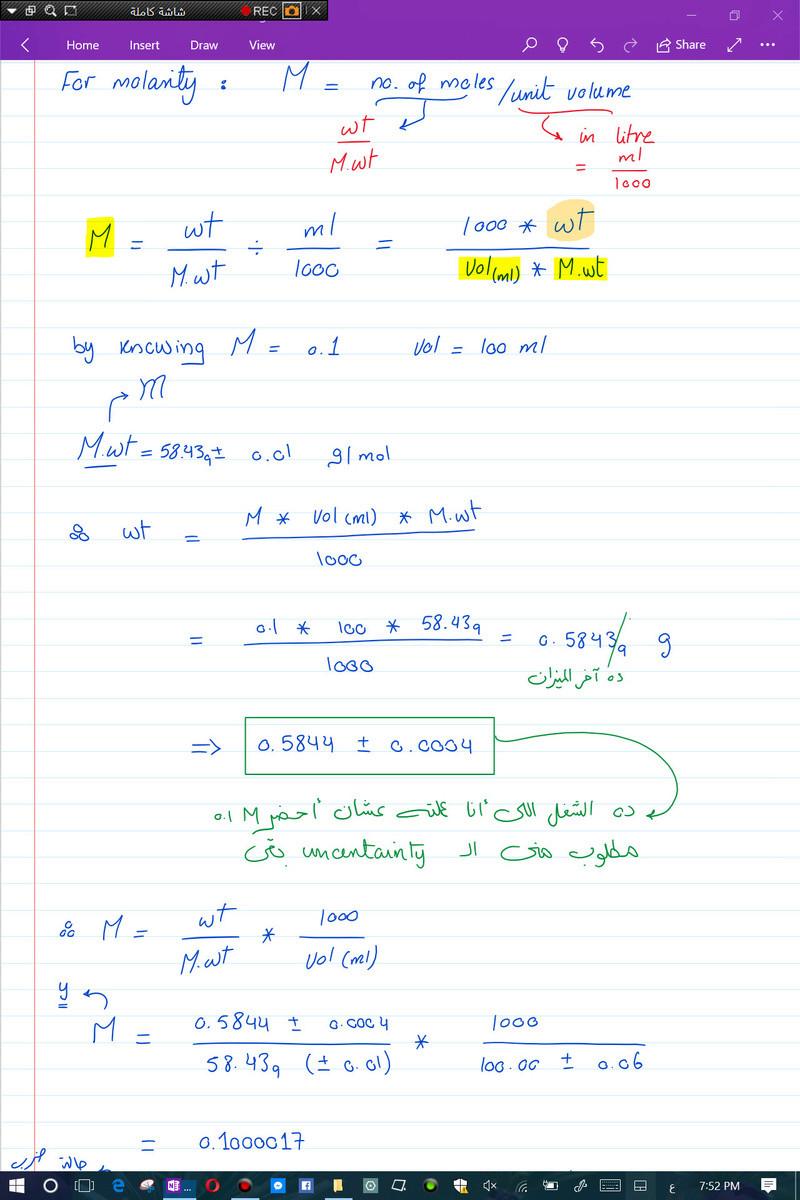 شاشة كاملة REC
Home Insert Draw View Share
For molarity : M = no. of moles /unit volume
wt
M.wt
in litre
= ml
1000
M = wt ÷ ml = 1000 * wt
M.wt 1000 Vol(ml) * M.wt
by knowing M = 0.1 Vol = 100 ml
M
M.wt = 58.439 ± 0.01 g/mol
wt = M * Vol (ml) * M.wt
1000
= 0.1 * 100 * 58.439 = 0.5843/9 g
1000
ده آخر الميزان
=> 0.5844 ± 0.0004
ده الشغل اللى أنا عملته عشان أحضر 0.1 M
مطلوب منى الـ uncertainty بقى
M = wt * 1000
M.wt Vol (ml)
y
M = 0.5844 ± 0.0004 * 1000
58.439 (± 0.01) 100.00 ± 0.06
= 0.1000017
حالة
7:52 PM